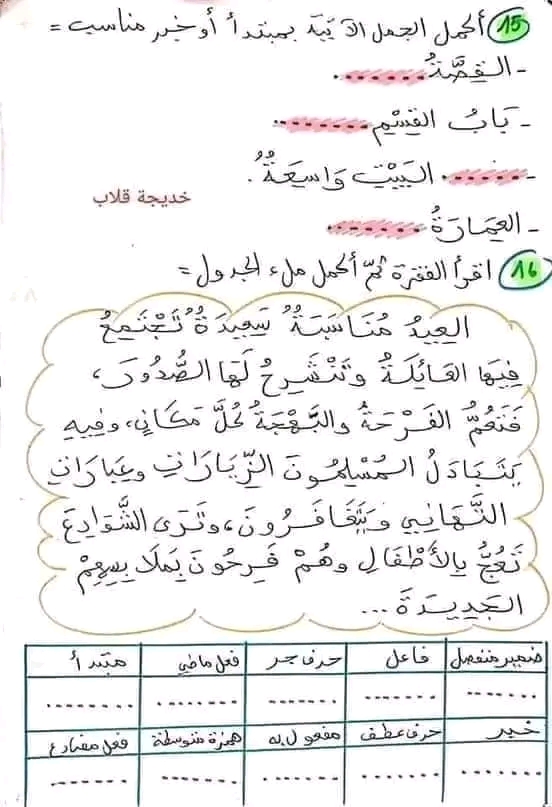 15 أكمل الجمل الآتية بمبتدأ أو خبر مناسب =
- القِصَّةُ ........
- بَابُ القِسْمِ ........
- ........ البَيْتِ وَاسِعَةٌ.
خديجة قلاب
- العِمَارَةُ ........
16 اقرأ الفقرة ثمّ أكمل ملء الجدول =
العِيدُ مُنَاسَبَةٌ سَعِيدَةٌ تَجْتَمِعُ
فِيهَا العَائِلَةُ وَتَنْشَرِحُ لَهَا الصُّدُورُ،
فَتَعُمُّ الفَرْحَةُ والبَهْجَةُ كُلَّ مَكَانٍ، وفِيهِ
يَتَبَادَلُ المُسْلِمُونَ الزِّيَارَاتِ وعِبَارَاتِ
التَّهَانِي وَيَتَغَافَرُونَ، وتَرَى الشَّوَارِعَ
تَعُجُّ بِالأَطْفَالِ وهُمْ فَرِحُونَ بِمَلَابِسِهِمْ
الجَدِيدَةِ ...
ضمير منفصل | فاعل | حرف جر | فعل ماضي | مبتدأ
....... | ....... | ....... | ........ | ........
خبر | حرف عطف | مفعول به | همزة متوسطة | فعل مضارع
........ | ........ | ........ | ....... | .......